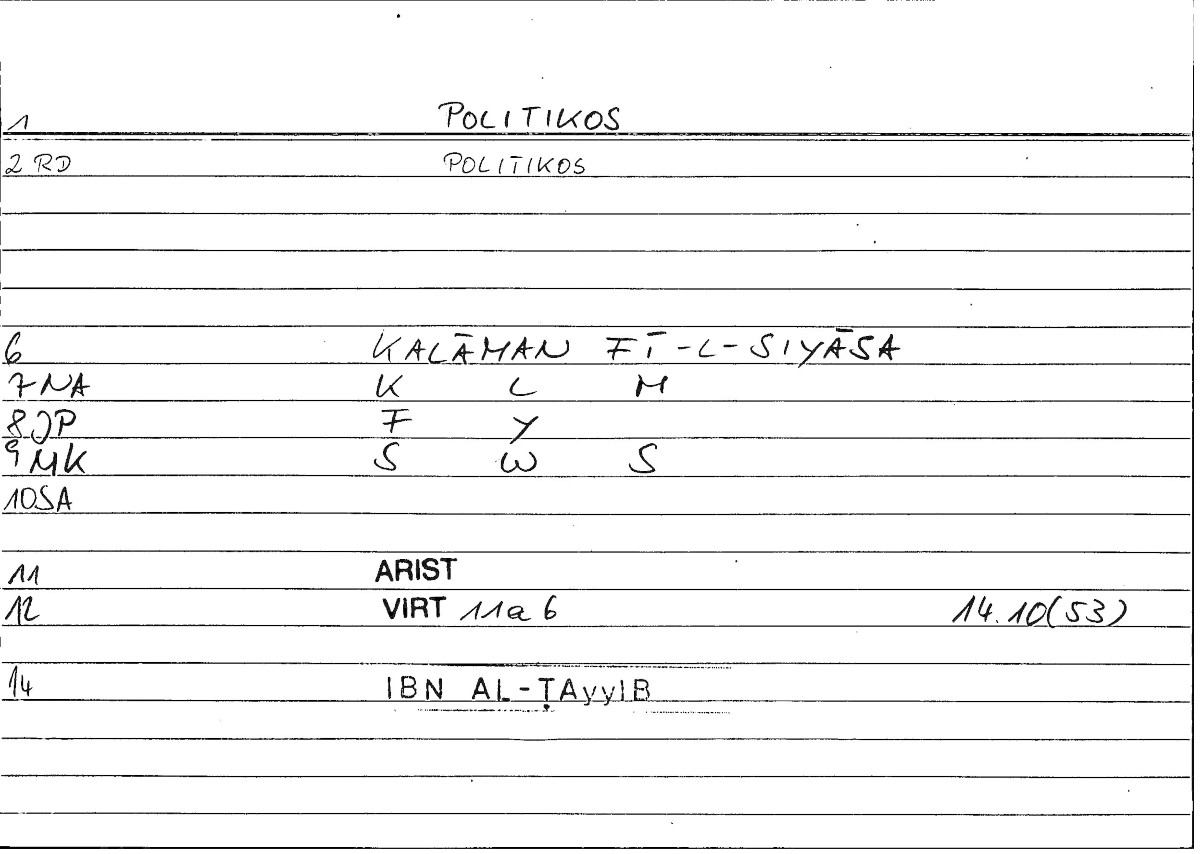 1 POLITIKOS
2 RD POLITIKOS
6 KALĀMAN FĪ-L-SIYĀSA
7 NA K L M
8 JP F Y
9 MK S W S
10 SA
11 ARIST
12 VIRT 11a6 14.10(53)
14 IBN AL-ṬAyyIB